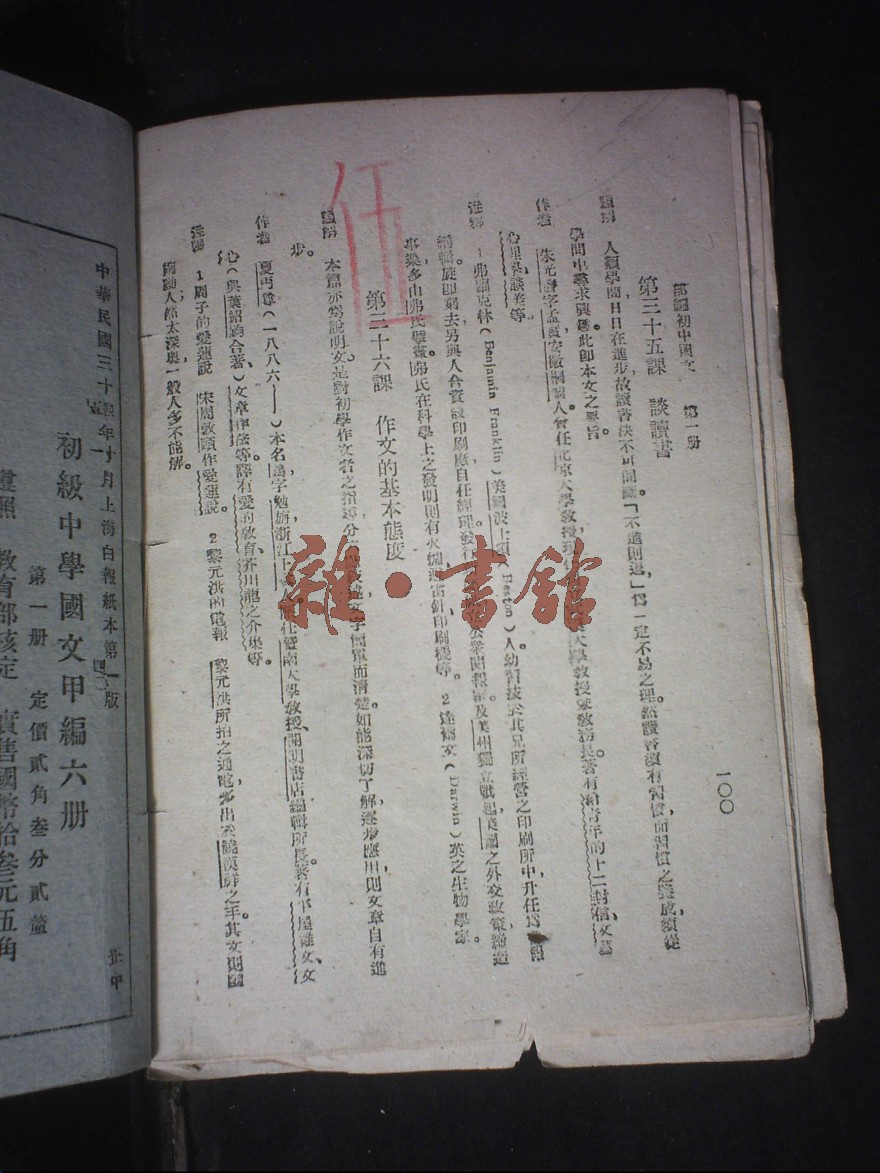 部編初中國文 第一册
一〇〇
第三十五課 談讀書
題解 人類學問日日在進步，故讀書決不可間斷。「不進則退」爲一定不易之理。然讀書須有習慣，而習慣之養成，須從
學問中尋求興趣，此即本文之要旨。
作者 朱光潛字孟實，安徽桐城人。曾任北京大學教授，現任大學教授兼教務長。著有給青年的十二封信、文藝
心理學、談美等。
注釋 1 弗蘭克林（Benjamin Franklin）美國波士頓（Boston）人。幼習技於其兄所經營之印刷所中，升任爲報
編輯。旋即辭去，另與人合資設印刷廠，自任經理，發行公衆開報。及美州獨立戰起，美國之外交政策締造
事業，多由弗氏擘畫。弗氏在科學上之發明則有火爐、避雷針、印刷機等。 2 達爾文（Darwin）英之生物學家。
第三十六課 作文的基本態度
題解 本篇亦爲說明文，是對初學作文者之指導。文字簡單而清楚，如能深切了解，逐步應用，則文章自有進
步。
作者 夏丏尊（一八八六——）本名鑄，字勉旃，浙江上任暨南大學教授、開明書店編輯所長。著有平屋雜文、文
心（與葉紹鈞合著）、文章作法等。譯有愛的教育、芥川龍之介集等。
注釋 1 周子的愛蓮說 宋周敦頤作愛蓮說。 2 黎元洪的電報 黎元洪所拍之通電，多出饒漢祥之手。其文則
動人，然太深奧，一般人多不能解。
伍
雜·書館
中華民國三十年十月上海白報紙本第一版
初級中學國文甲編六册
第一册 定價貳角叁分貳釐
遵照 教育部核定 實售國幣拾叁元伍角